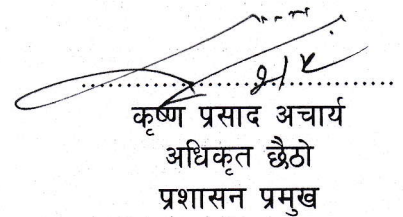 कृष्ण प्रसाद अचार्य
अधिकृत छैठो
प्रशासन प्रमुख